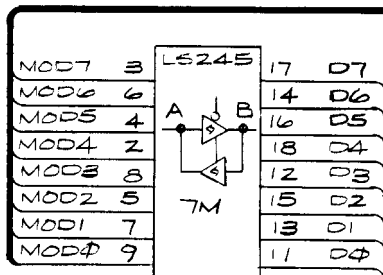 LS245
MOD7 3 17 D7
MOD6 6 14 D6
MOD5 4 16 D5
MOD4 2 18 D4
MOD3 8 12 D3
MOD2 5 15 D2
MOD1 7 13 D1
MOD0 9 11 D0
A B
7M